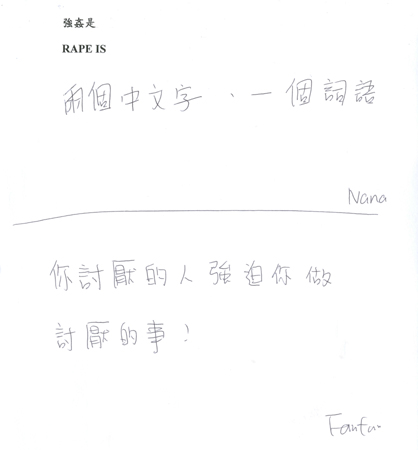 強姦是
RAPE IS
兩個中文字、一個詞語
Nana
你討厭的人強迫你做
討厭的事！